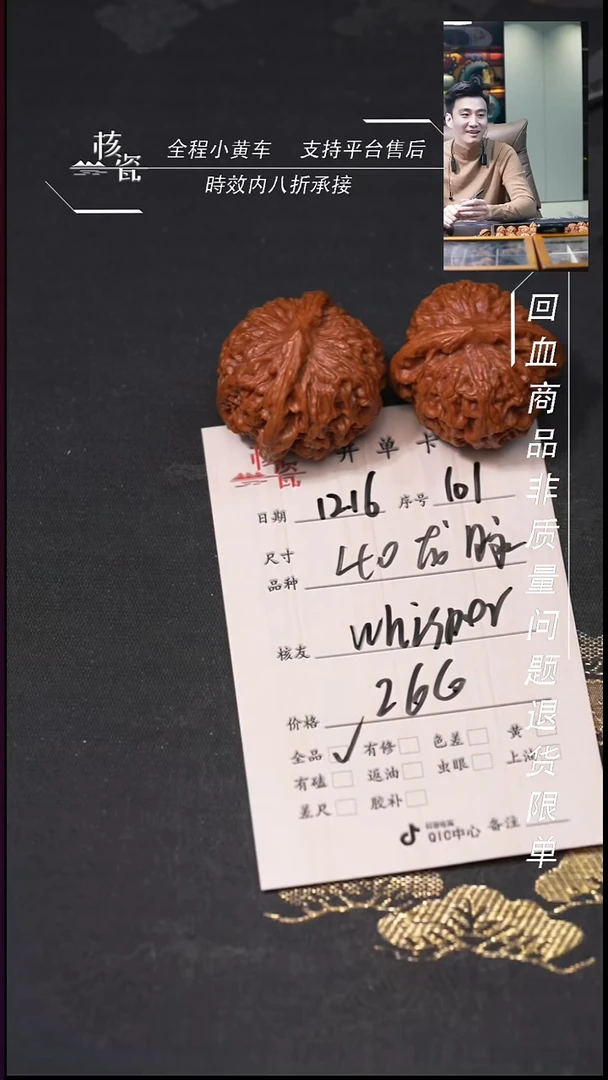 核瓷
全程小黄车 支持平台售后
時效内八折承接
回血商品非质量问题退货限单
核瓷
开单卡
日期 1216 序号 101
尺寸
品种 40龙脉
核友 whisper
价格 266
全品 ✓ 有修 色差 黄
有磕 返油 虫眼 上油
差尺 胶补
QIC中心 备注